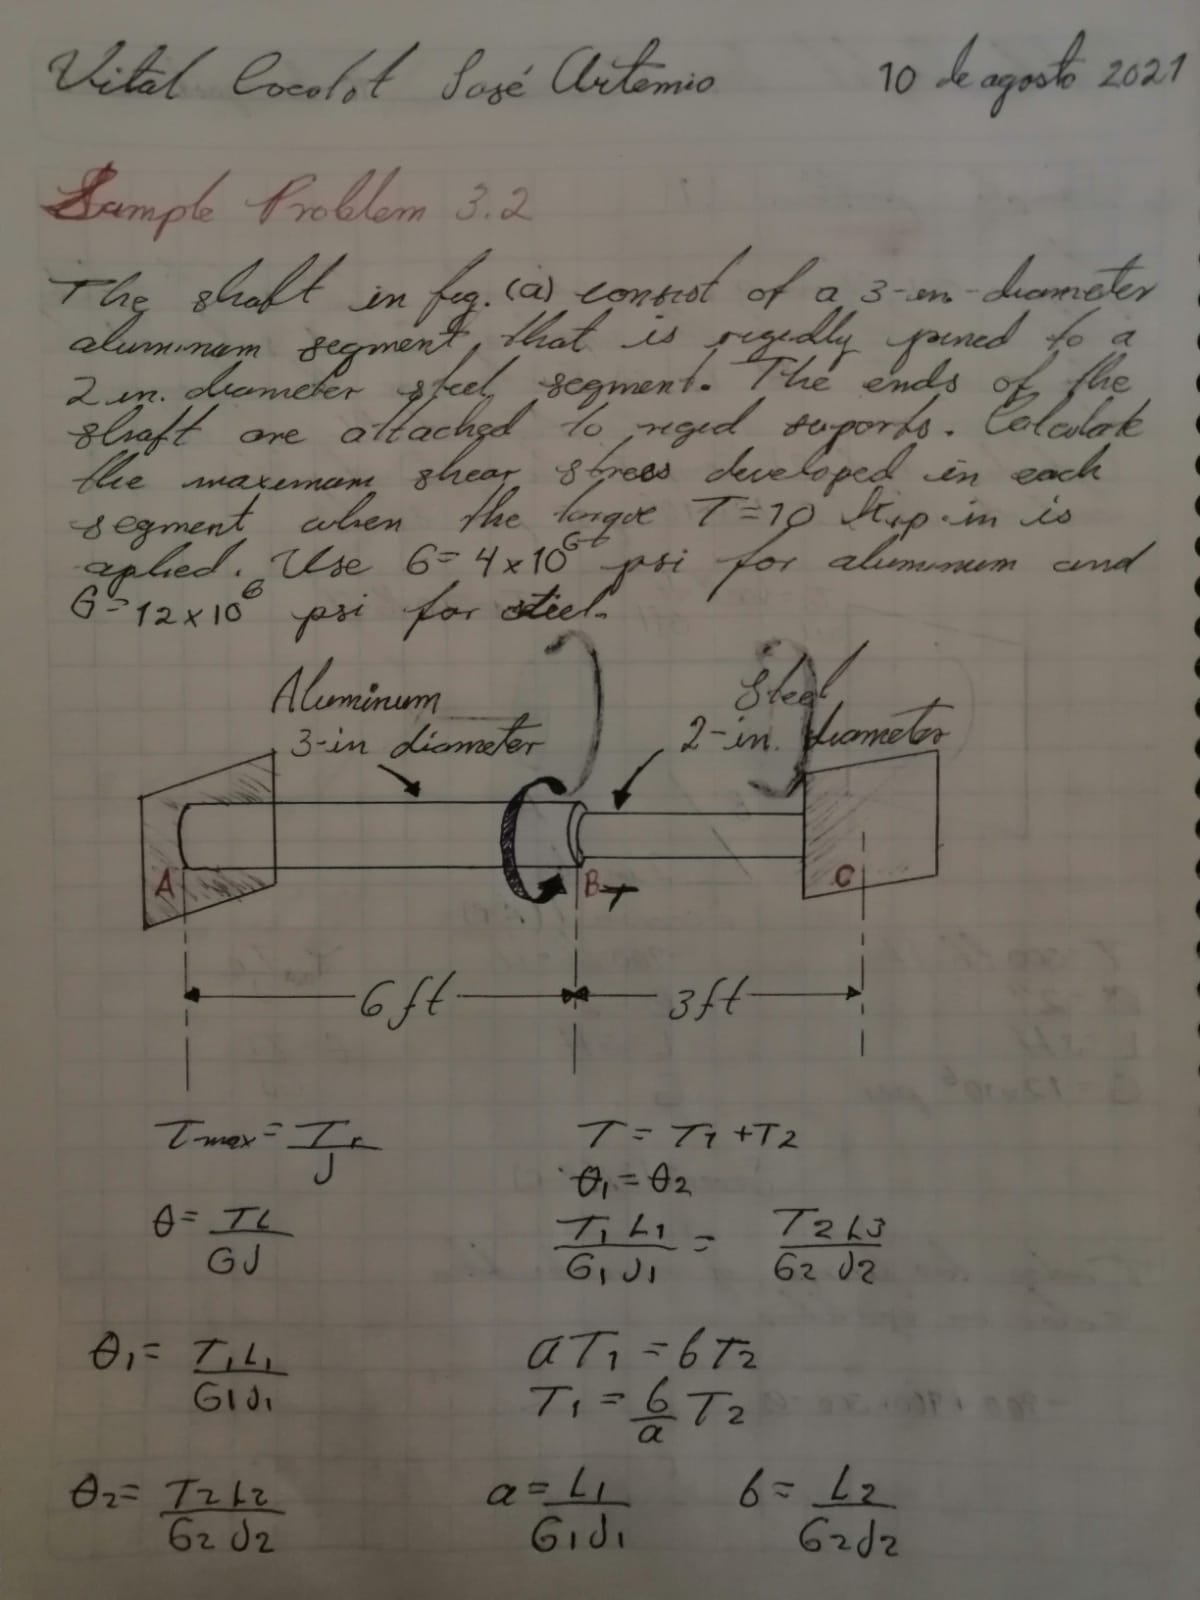 Vital Cocolot José Artemio 10 de agosto 2021
Sample Problem 3.2
The shaft in fig. (a) consist of a 3-in-diameter
aluminum segment that is rigidly joined to a
2 in. diameter steel segment. The ends of the
shaft are attached to riged suports. Calculate
the maximum shear stress developed in each
segment when the torque T=10 kip.in is
aplied. Use G=4x10⁶ psi for aluminum and
G=12x10⁶ psi for steel.
Aluminum
3-in diameter
Steel
2-in. diameter
A B T C
6ft 3ft
τmax = Tr/J T = T1 + T2
θ1 = θ2
θ = TL/GJ T1 L1/G1 J1 = T2 L3/G2 J2
θ1 = T1L1/G1J1 aT1 = bT2
T1 = b/a T2
θ2 = T2L2/G2J2 a = L1/G1J1 b = L2/G2J2